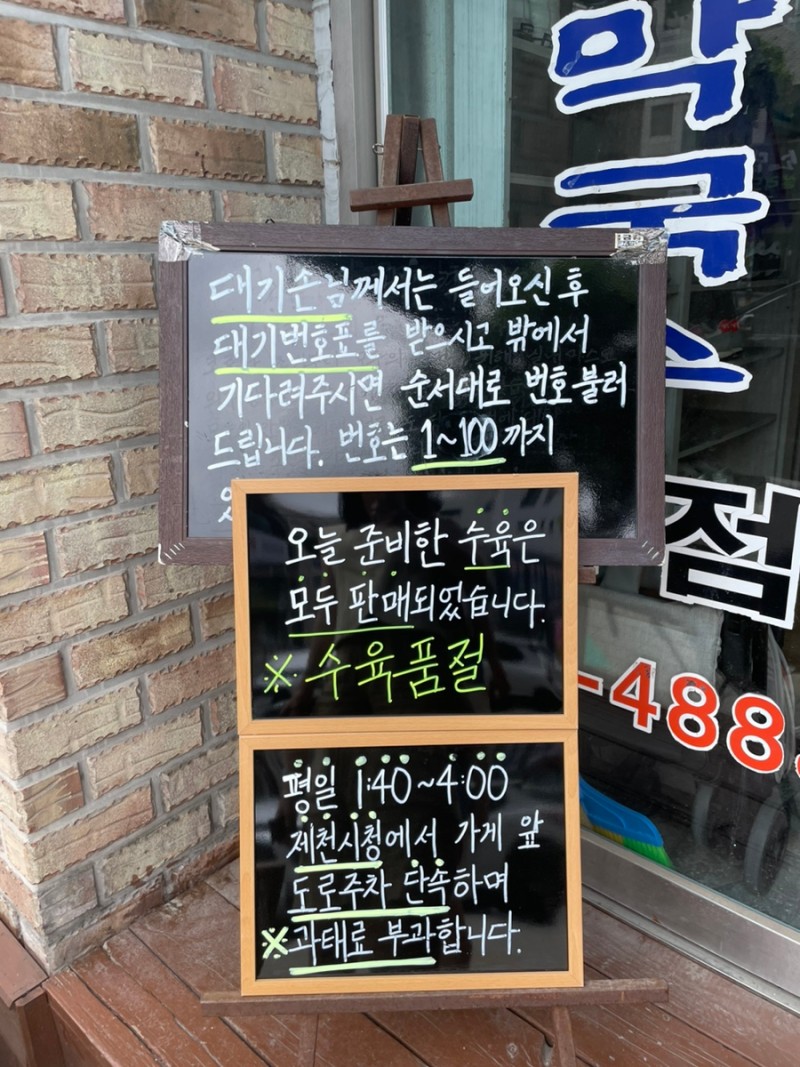 대기손님께서는 들어오신 후
대기번호표를 받으시고 밖에서
기다려주시면 순서대로 번호불러
드립니다. 번호는 1~100 까지
오늘 준비한 수육은
모두 판매되었습니다.
※ 수육품절
평일 1:40 ~ 4:00
제천시청에서 가게 앞
도로주차 단속하며
※과태료 부과합니다.
막국수
점
-488